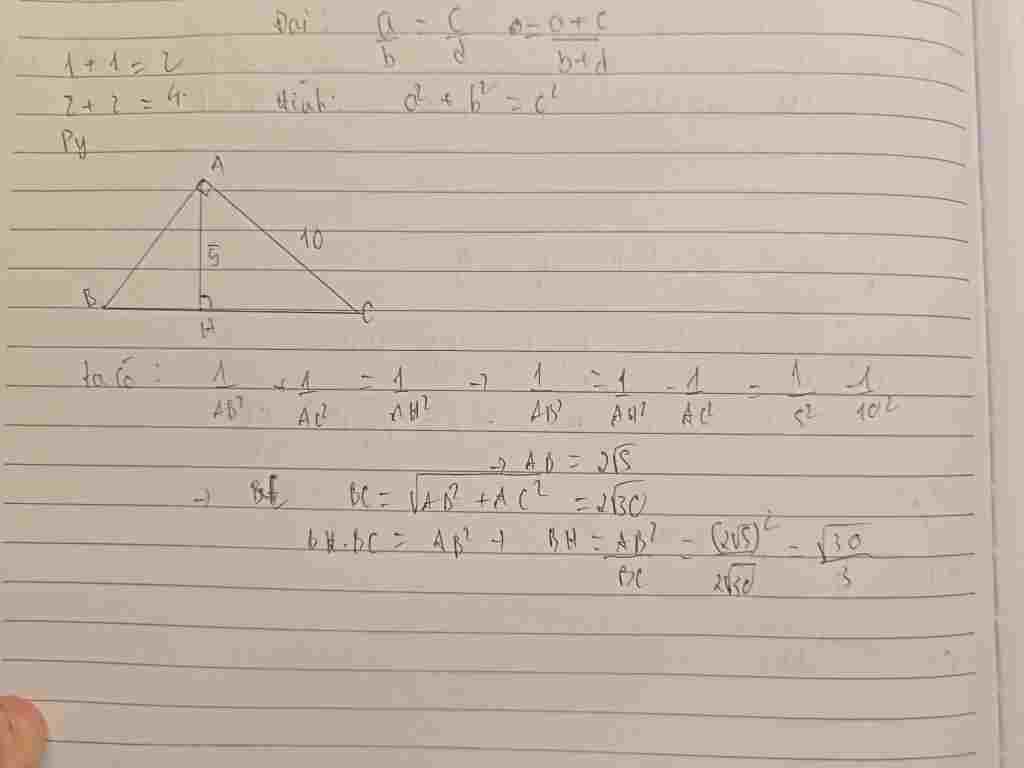 Đại: a/b = c/d = a+c/b+d
1 + 1 = 2
2 + 2 = 4
Hình: a² + b² = c²
Py
A
5
10
B
H
C
ta có: 1/AB² + 1/AC² = 1/AH² → 1/AB² = 1/AH² - 1/AC² = 1/5² - 1/10²
→ AB = 2√5
→ BC = √AB² + AC² = 2√30
BH.BC = AB² → BH = AB²/BC = (2√5)²/2√30 = √30/3